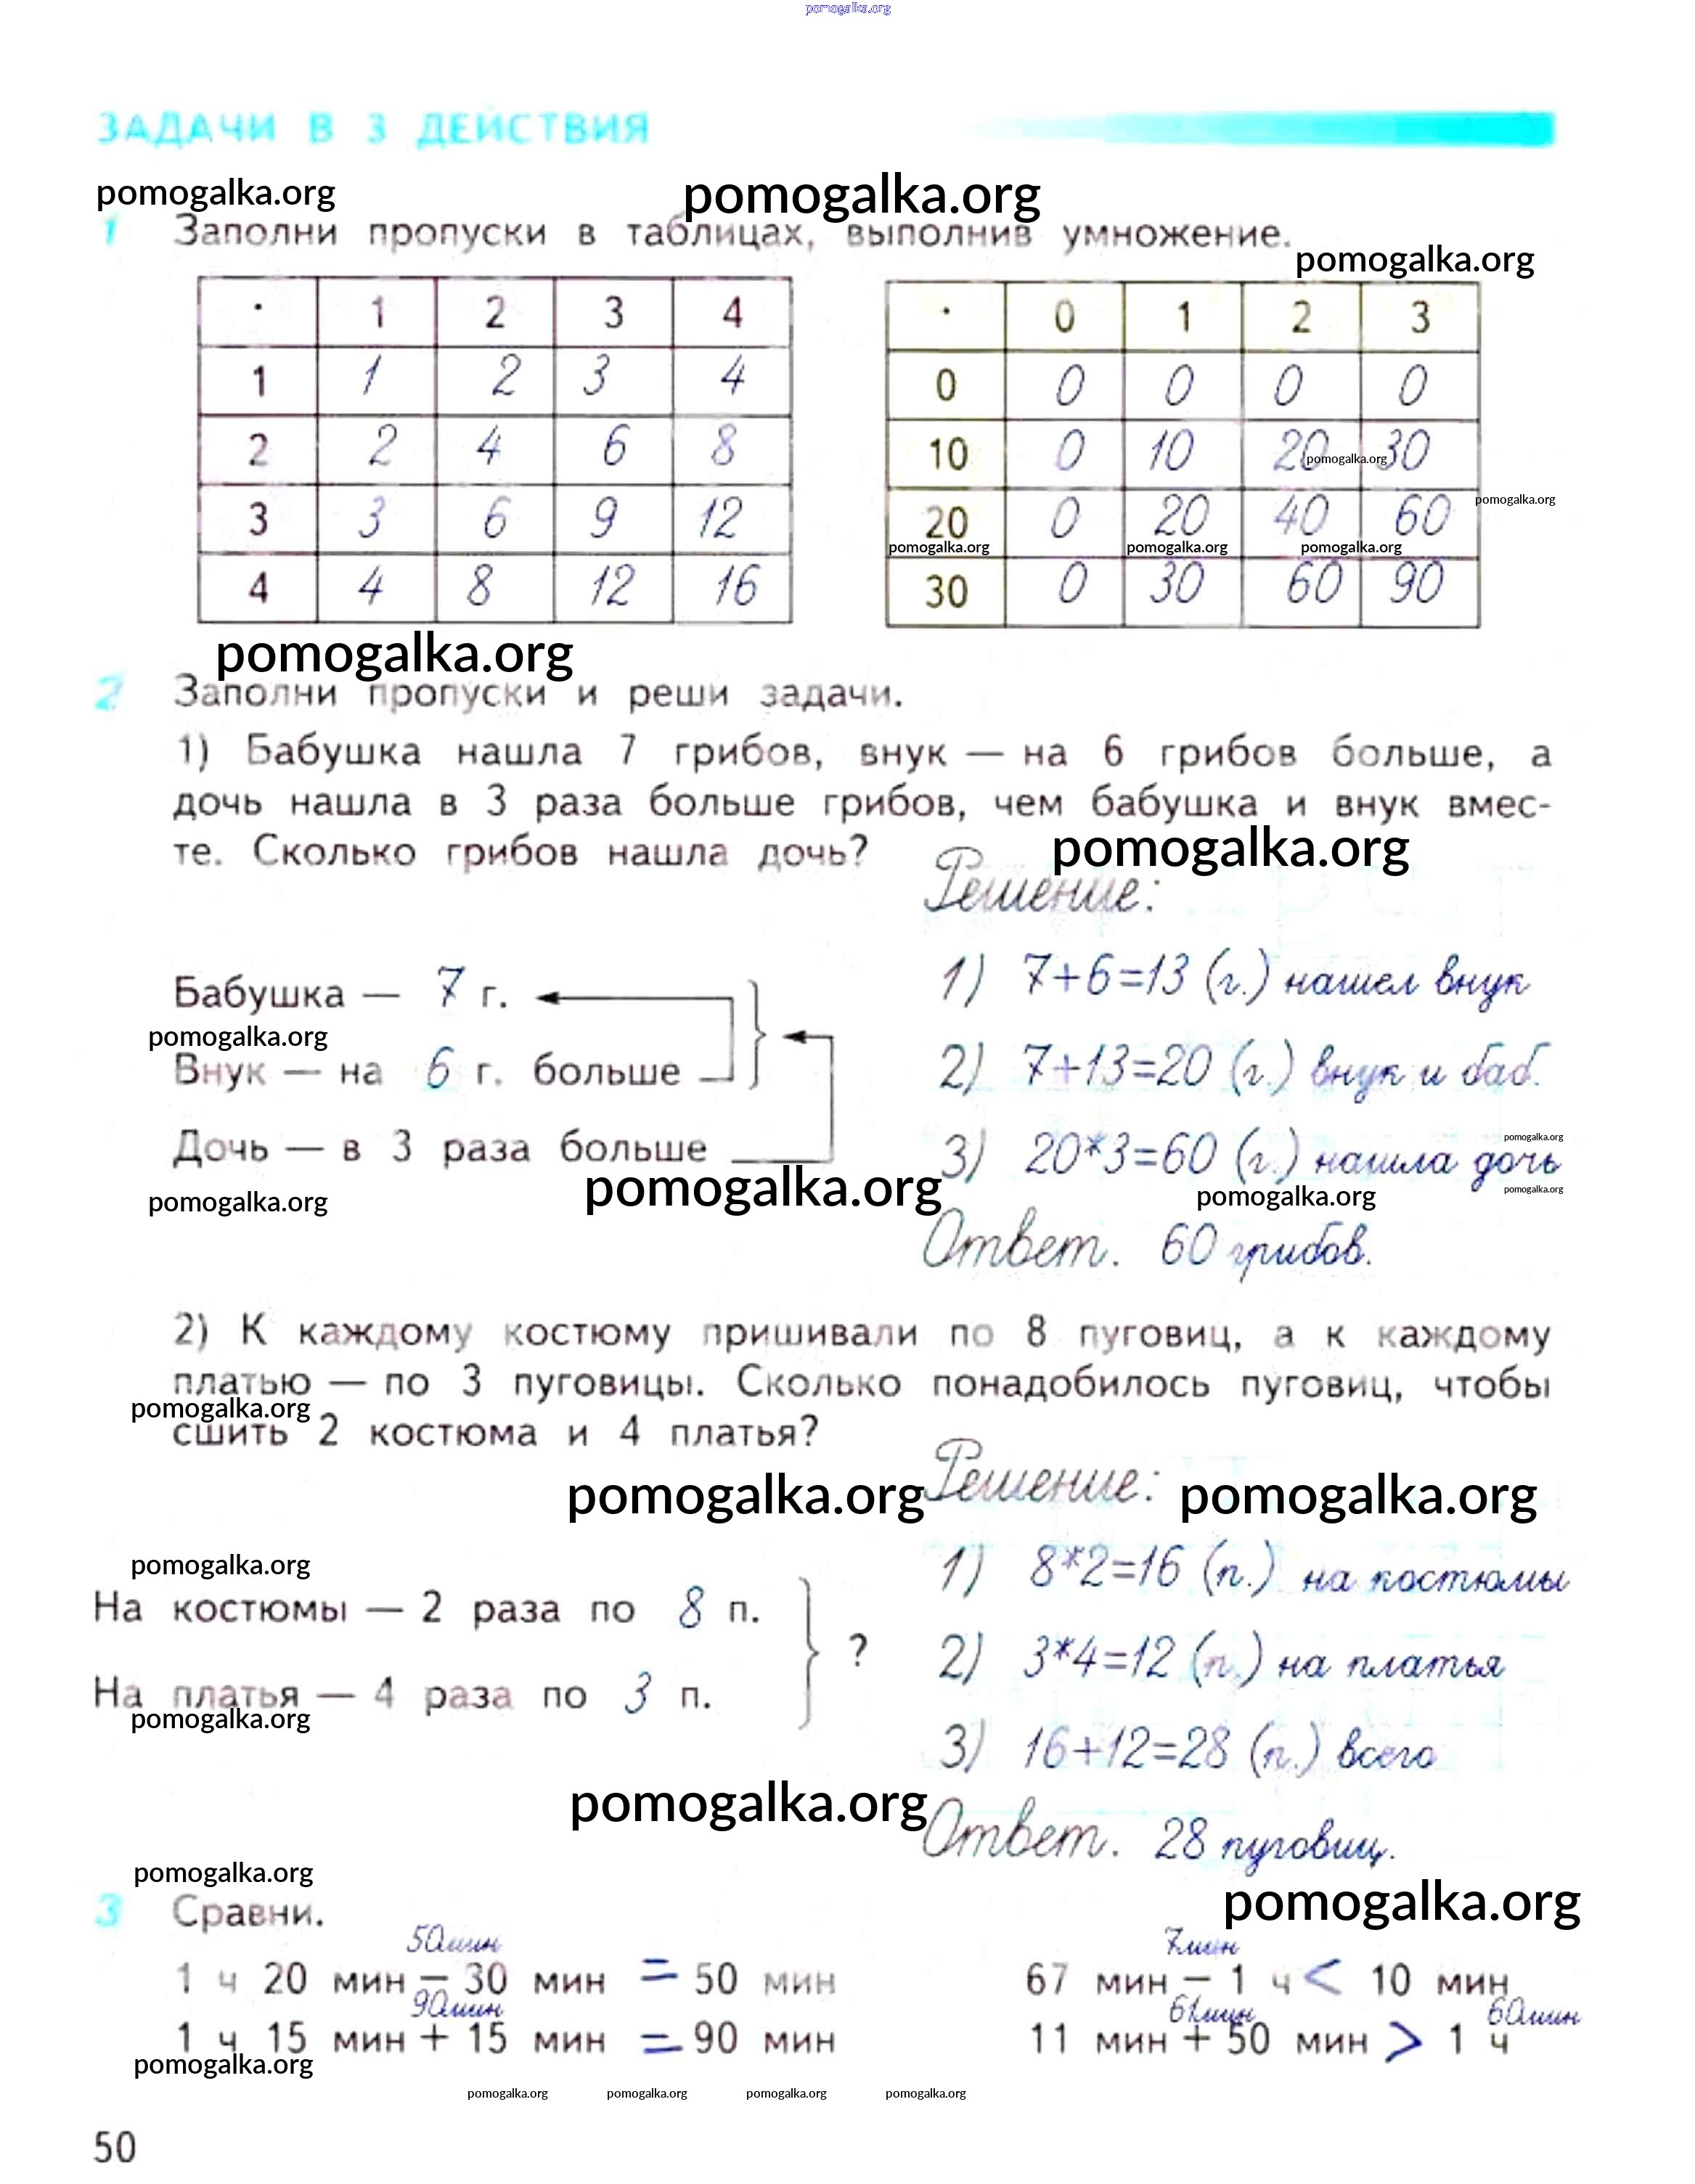 pomogalka.org
ЗАДАЧИ В 3 ДЕЙСТВИЯ
pomogalka.org pomogalka.org
1 Заполни пропуски в таблицах, выполнив умножение.
pomogalka.org
· 1 2 3 4
1 1 2 3 4
2 2 4 6 8
3 3 6 9 12
4 4 8 12 16
· 0 1 2 3
0 0 0 0 0
10 0 10 20 30
pomogalka.org
pomogalka.org
20 0 20 40 60
pomogalka.org pomogalka.org pomogalka.org
30 0 30 60 90
pomogalka.org
2 Заполни пропуски и реши задачи.
1) Бабушка нашла 7 грибов, внук — на 6 грибов больше, а
дочь нашла в 3 раза больше грибов, чем бабушка и внук вмес-
те. Сколько грибов нашла дочь?
pomogalka.org
Решение:
Бабушка — 7 г.
1) 7+6=13 (г.) нашел внук
pomogalka.org
Внук — на 6 г. больше
2) 7+13=20 (г.) внук и баб.
Дочь — в 3 раза больше
pomogalka.org
3) 20*3=60 (г.) нашла дочь
pomogalka.org pomogalka.org pomogalka.org pomogalka.org
Ответ. 60 грибов.
2) К каждому костюму пришивали по 8 пуговиц, а к каждому
платью — по 3 пуговицы. Сколько понадобилось пуговиц, чтобы
pomogalka.org
сшить 2 костюма и 4 платья?
Решение:
pomogalka.org pomogalka.org
pomogalka.org
1) 8*2=16 (п.) на костюмы
На костюмы — 2 раза по 8 п.
?
2) 3*4=12 (п.) на платья
На платья — 4 раза по 3 п.
pomogalka.org
3) 16+12=28 (п.) всего
pomogalka.org
Ответ. 28 пуговиц.
pomogalka.org
pomogalka.org
3 Сравни.
50мин 7мин
1 ч 20 мин − 30 мин = 50 мин 67 мин − 1 ч < 10 мин
90мин 61мин 60мин
1 ч 15 мин + 15 мин = 90 мин 11 мин + 50 мин > 1 ч
pomogalka.org
pomogalka.org pomogalka.org pomogalka.org pomogalka.org
50